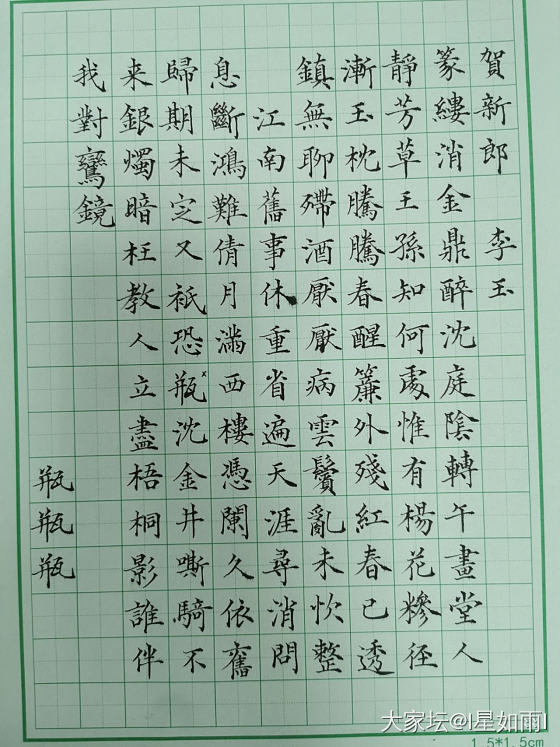 賀新郎 李玉
篆縷消金鼎醉沈庭陰轉午畫堂人
靜芳草王孫知何處惟有楊花糝径
漸玉枕騰騰春醒簾外殘紅春已透
鎮無聊殢酒厭厭病雲鬢亂未忺整
江南舊事休重省遍天涯尋消問
息斷鴻難倩月滿西樓憑闌久依舊
歸期未定又祇恐瓶沈金井嘶騎不
来銀燭暗枉教人立盡梧桐影誰伴
我對鸞鏡
瓶瓶瓶
大家坛@|星如雨|
1.5*1.5cm